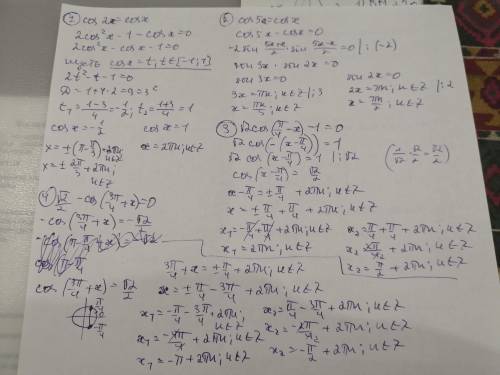 ① cos 2x = cosx
2cos²x - 1 - cosx = 0
2cos²x - cosx - 1 = 0
cosx = t; t∈[-1;1]
2t² - t - 1 = 0
D = 1 + 4·2 = 9 = 3²
t₁ = (1-3)/4 = -1/2; t₂ = (1+3)/4 = 1
cosx = -1/2 cosx = 1
x = ±(π - π/3) + 2πn; n∈Z x = 2πn; n∈Z
x = ± 2π/3 + 2πn; n∈Z
② cos5x = cosx
cos5x - cosx = 0
-2 sin (5x+x)/2 · sin (5x-x)/2 = 0 | :(-2)
sin 3x · sin 2x = 0
sin 3x = 0 sin 2x = 0
3x = πn; n∈Z | :3 2x = πn; n∈Z | :2
x = πn/3; n∈Z x = πn/2; n∈Z
③ √2 cos(π/4 - x) - 1 = 0
√2 cos(-(x - π/4)) = 1
√2 cos(x - π/4) = 1 | :√2 (1/√2 · √2/√2 = √2/2)
cos(x - π/4) = √2/2
x - π/4 = ± π/4 + 2πn; n∈Z
x = ± π/4 + π/4 + 2πn; n∈Z
x₁ = -π/4 + π/4 + 2πn; n∈Z x₂ = π/4 + π/4 + 2πn; n∈Z
x₁ = 2πn; n∈Z x₂ = 2π/4 + 2πn; n∈Z
x₂ = π/2 + 2πn; n∈Z
④ √2/2 - cos(3π/4 + x) = 0
-cos(3π/4 + x) = -√2/2
cos(3π/4 + x) = √2/2
3π/4 + x = ± π/4 + 2πn; n∈Z
x = ± π/4 - 3π/4 + 2πn; n∈Z
x₁ = -π/4 - 3π/4 + 2πn; n∈Z x₂ = π/4 - 3π/4 + 2πn; n∈Z
x₁ = -4π/4 + 2πn; n∈Z x₂ = -2π/4 + 2πn; n∈Z
x₁ = -π + 2πn; n∈Z x₂ = -π/2 + 2πn; n∈Z